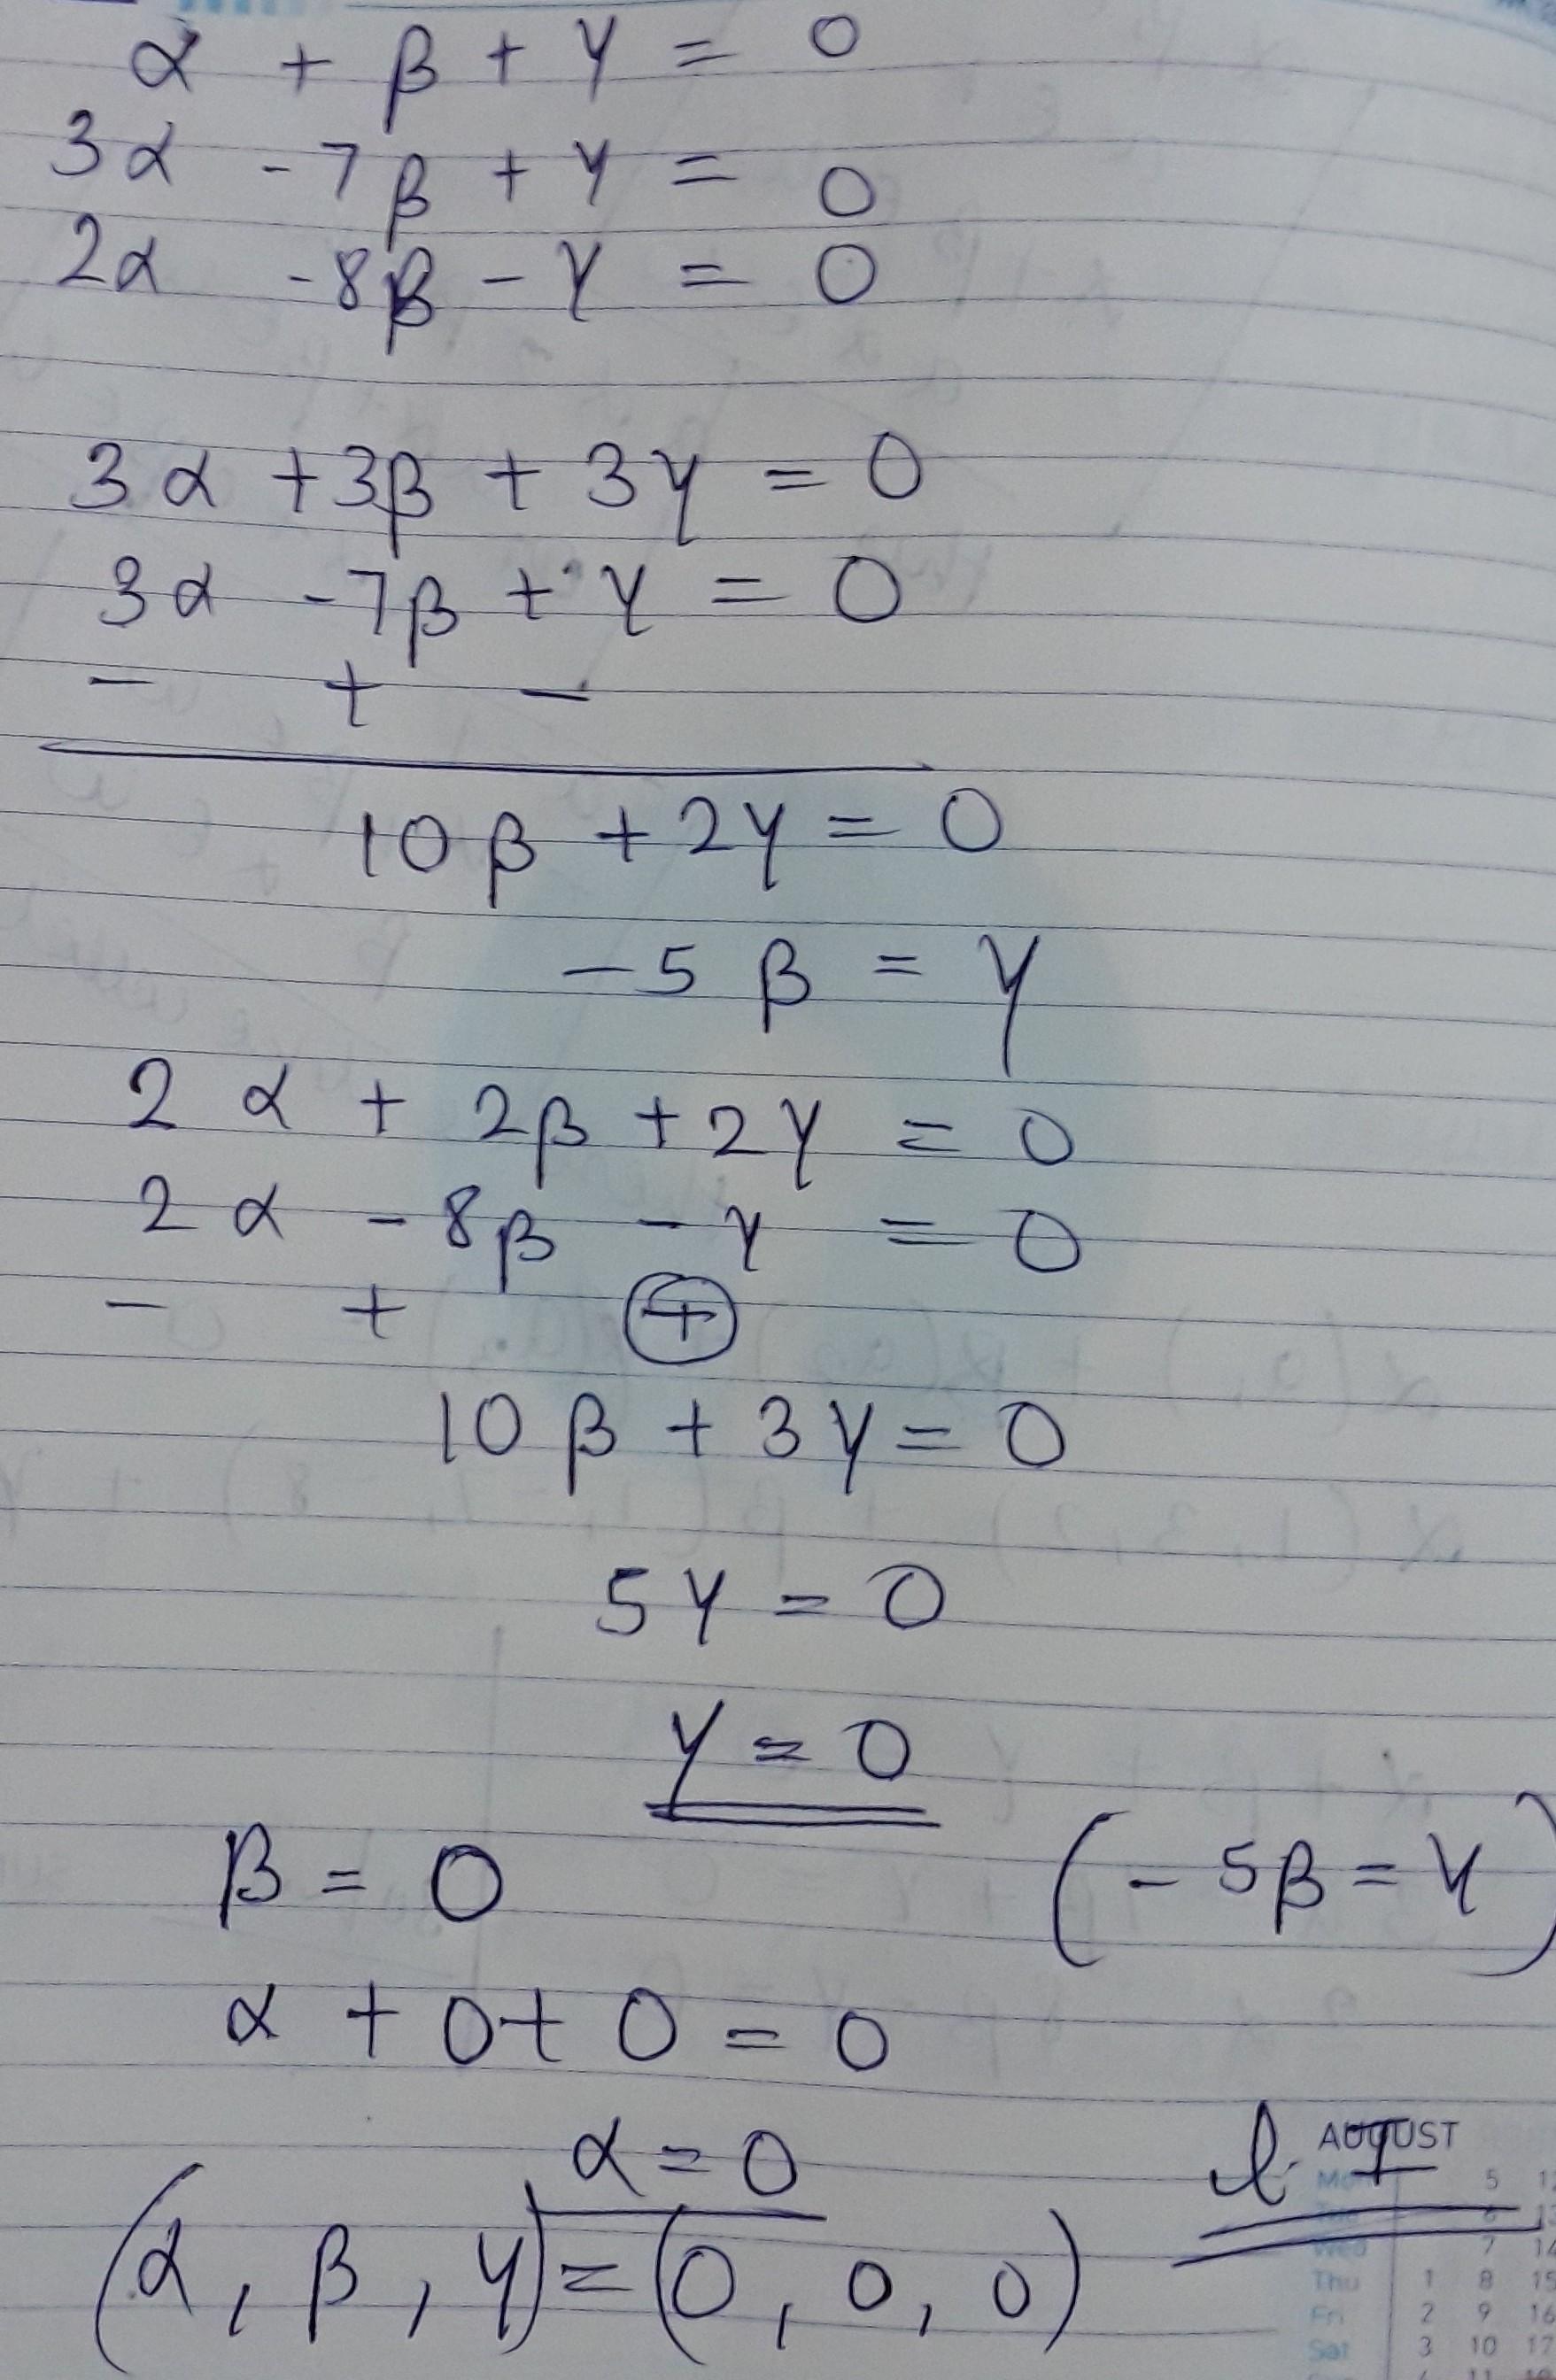 α + β + γ = 0
3α - 7β + γ = 0
2α - 8β - γ = 0
3α + 3β + 3γ = 0
3α - 7β + γ = 0
- + -
10β + 2γ = 0
-5β = γ
2α + 2β + 2γ = 0
2α - 8β - γ = 0
- + +
10β + 3γ = 0
5γ = 0
γ = 0
β = 0 (-5β = γ)
α + 0 + 0 = 0
α = 0
l. I
(α, β, γ) = (0, 0, 0)
AUGUST
5 12
6 13
Wed 7 14
Thu 1 8 15
Fri 2 9 16
Sat 3 10 17